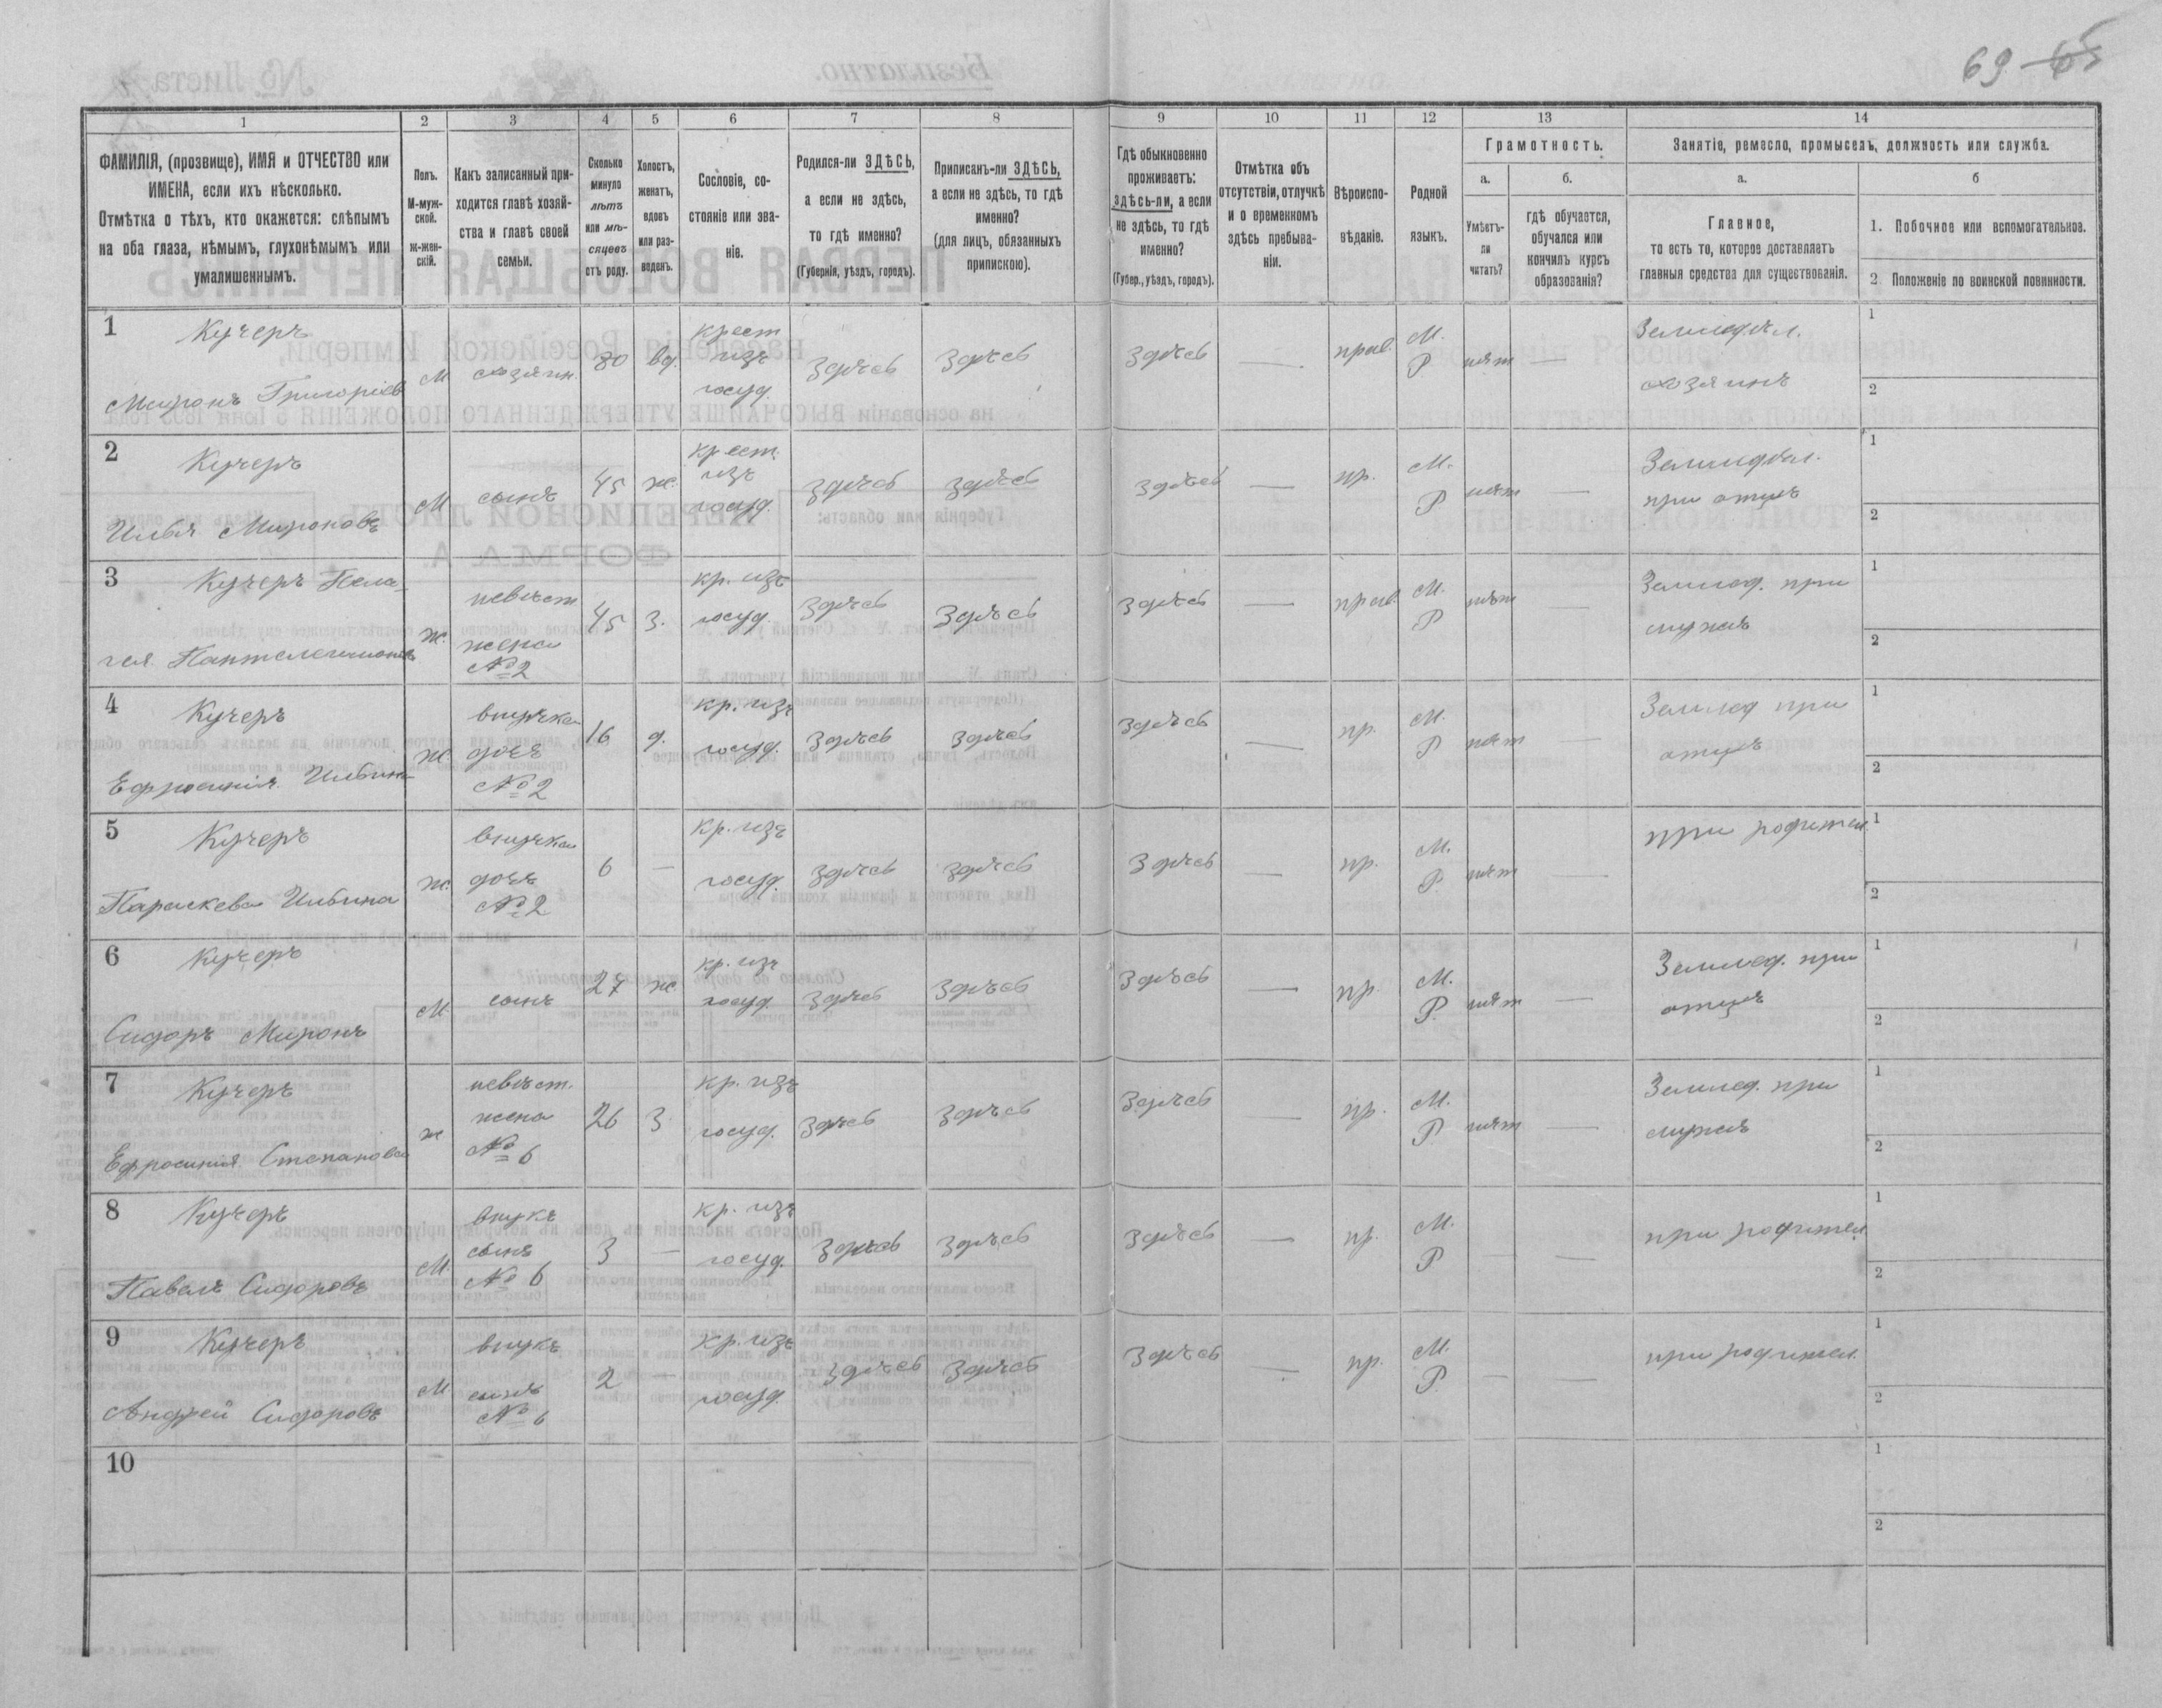 69 65
1 2 3 4 5 6 7 8 9 10 11 12 13 14
ФАМИЛІЯ, (прозвище), ИМЯ и ОТЧЕСТВО или
ИМЕНА, если ихъ нѣсколько.
Отмѣтка о тѣхъ, кто окажется: слѣпымъ
на оба глаза, нѣмымъ, глухонѣмымъ или
умалишеннымъ.
Полъ.
М-муж-
ской.
ж-жен-
скій.
Какъ записанный при-
ходится главѣ хозяй-
ства и главѣ своей
семьи.
Сколько
минуло
лѣтъ
или мѣ-
сяцевъ
отъ роду.
Холостъ,
женатъ,
вдовъ
или раз-
веденъ.
Сословіе, со-
стояніе или зва-
ніе.
Родился-ли ЗДѢСЬ,
а если не здѣсь,
то гдѣ именно?
(Губернія, уѣздъ, городъ).
Приписанъ-ли ЗДѢСЬ,
а если не здѣсь, то гдѣ
именно?
(для лицъ, обязанныхъ
припискою).
Гдѣ обыкновенно
проживаетъ:
здѣсь-ли, а если
не здѣсь, то гдѣ
именно?
(Губер., уѣздъ, городъ).
Отмѣтка объ
отсутствіи, отлучкѣ
и о временномъ
здѣсь пребыва-
ніи.
Вѣроиспо-
вѣданіе.
Родной
языкъ.
Грамотность.
а.
Умѣетъ-
ли
читать?
б.
гдѣ обучается,
обучался или
кончилъ курсъ
образованія?
Занятіе, ремесло, промыселъ, должность или служба.
а.
Главное,
то есть то, которое доставляетъ
главныя средства для существованія.
б
1. Побочное или вспомогательное.
2 Положеніе по воинской повинности.
1 Кучеръ
Миронъ Григоріев
М хозяин. 80 вд.
крест
изъ
госуд.
здѣсь здѣсь здѣсь — прав. М. Р нѣт —
Земледѣл.
хозяинъ
1
2
2 Кучеръ
Илья Мироновъ
М сынъ 45 ж.
крест.
изъ
госуд.
здѣсь здѣсь здѣсь — пр. М. Р нѣт —
Земледѣл.
при отцѣ
1
2
3 Кучеръ Пела-
гея Пантелеимонов
ж.
невѣст
жена
№ 2
45 З.
кр. изъ
госуд.
здѣсь здѣсь здѣсь — прав. М. Р нѣт —
Землед. при
мужѣ
1
2
4 Кучеръ
Ефросинія Ильина
ж.
внучка
дочь
№ 2
16 д.
кр. изъ
госуд.
здѣсь здѣсь здѣсь — пр. М. Р нѣт —
Землед при
отцѣ
1
2
5 Кучеръ
Параскева Ильина
ж.
внучка
дочь
№ 2
6 —
кр. изъ
госуд.
здѣсь здѣсь здѣсь — пр. М. Р. нѣт —
при родител
1
2
6 Кучеръ
Сидоръ Миронъ
М. сынъ 27 ж
кр. изъ
госуд.
здѣсь здѣсь здѣсь — пр. М. Р. нѣт —
Землед. при
отцѣ
1
2
7 Кучеръ
Ефросинія Степанова
ж
невѣст.
жена
№ 6
26 З.
кр. изъ
госуд.
здѣсь здѣсь здѣсь — пр. М. Р. нѣт —
Землед. при
мужѣ
1
2
8 Кучеръ
Павелъ Сидоровъ
М.
внукъ
сынъ
№ 6
3 —
кр. изъ
госуд.
здѣсь здѣсь здѣсь — пр. М. Р — —
при родител
1
2
9 Кучеръ
Андрей Сидоровъ
М
внукъ
сынъ
№ 6
2 —
кр. изъ
госуд.
здѣсь здѣсь здѣсь — пр. М. Р. — —
при родител.
1
2
10
1
2